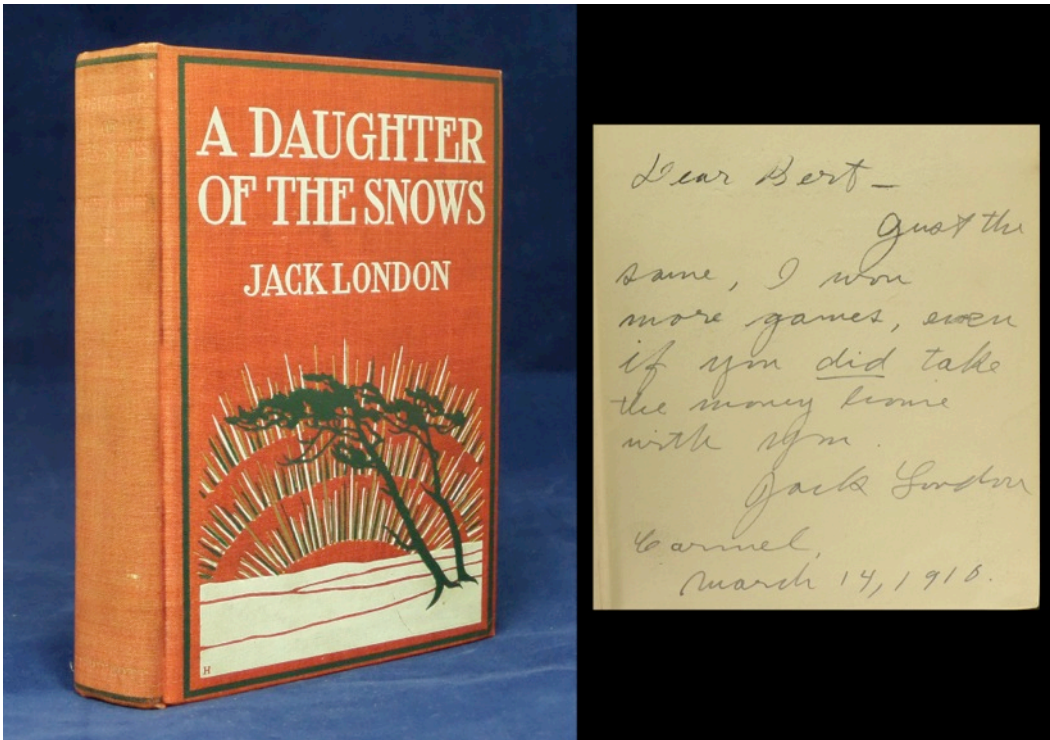 A DAUGHTER
OF THE SNOWS
JACK LONDON
H
Dear Bert —
Just the
same, I won
more games, even
if you did take
the money home
with you.
Jack London
Carmel,
March 14, 1910.